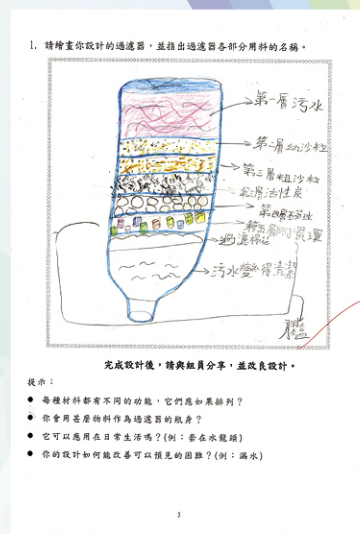 1. 請繪畫你設計的過濾器，並指出過濾器各部分用料的名稱。
第一層污水
第一層幼沙粒
第二層粗沙粒
第三層活性炭
第四層石英珠
第五層陶瓷環
過濾棉花
污水變得清潔
完成設計後，請與組員分享，並改良設計。
提示：
● 每種材料都有不同的功能，它們應如果排列？
● 你會用甚麼物料作為過濾器的瓶身？
● 它可以應用在日常生活嗎？(例：套在水龍頭)
● 你的設計如何能改善可以預見的困難？(例：漏水)
3